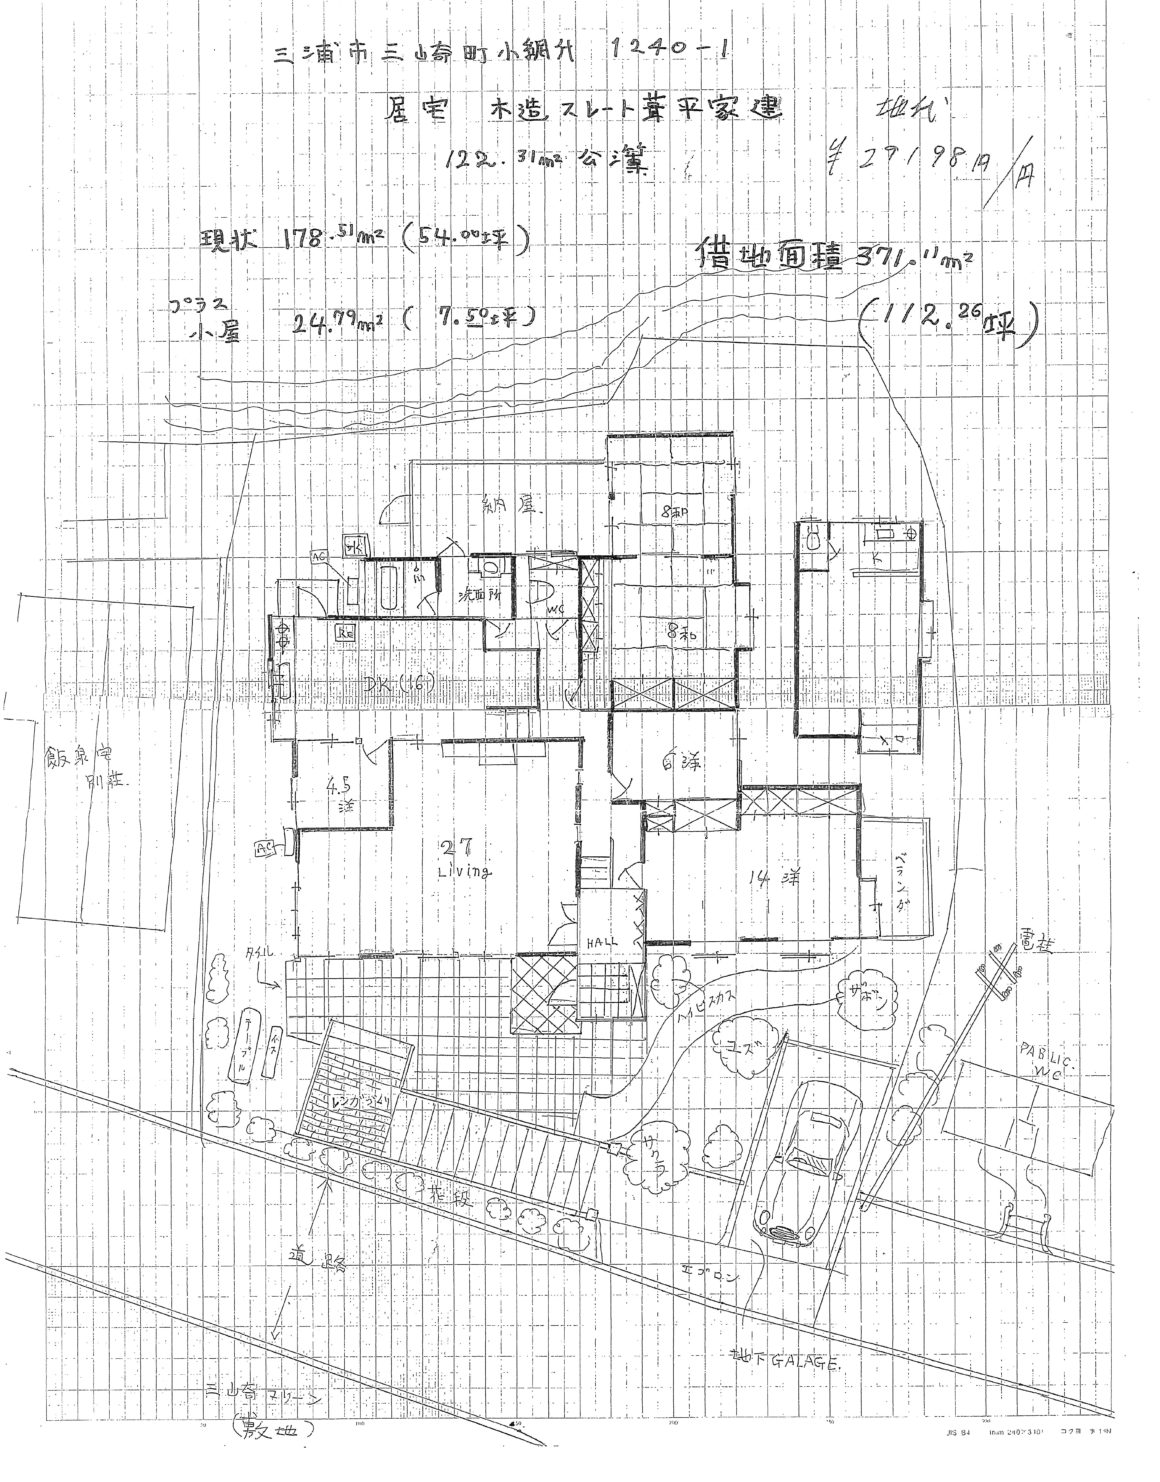 三浦市三崎町小網代 1240-1
居宅 木造スレート葺平家建
地代
122.31m² 公簿
¥29198円/月
現状 178.51m² (54.00坪)
借地面積 371.11m²
プラス
小屋 24.79m² ( 7.50坪)
(112.26坪)
納屋
8和
AC
K
洗面所
WC
Re
8和
DK (16)
飯泉宅
別荘
4.5
洋
6洋
AC
27
Living
14 洋
ベランダ
HALL
電柱
タイル
ハイビスカス
ザボン
ユーズ
テーブル
イス
PABLIC.
WC
レンガづくり
サクラ
花段
道路
エプロン
地下GALAGE.
三崎マリーン
(敷地)
JIS B4
コクヨ